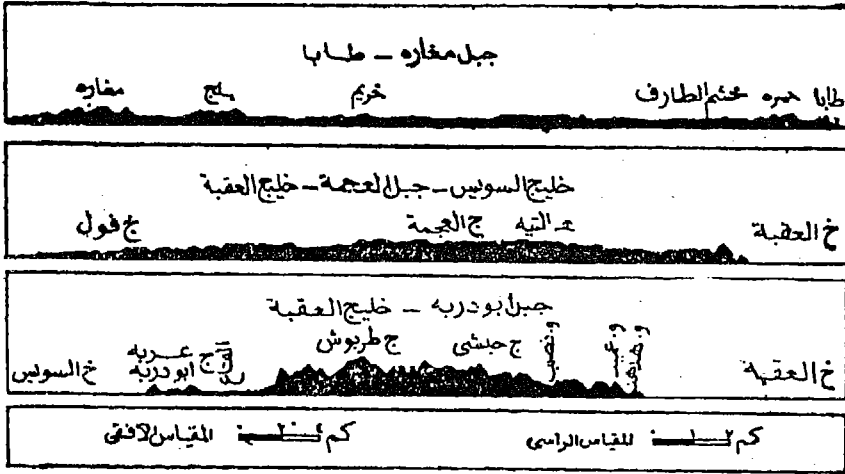 جبل مغاره - طابا
طابا حمره خشم الطارف خريم يلج مغاره
خليج السويس - جبل العجمة - خليج العقبة
خ العقبة هـ التيه ج العجمة ج فول
جبل ابو دربه - خليج العقبة
خ العقبة و. نصب ج حبشى ج طربوش القاع ج عربه ابو دربه خ السويس
كم ٢ ١ المقياس الراسى كم ٤ ٢ المقياس الافقى